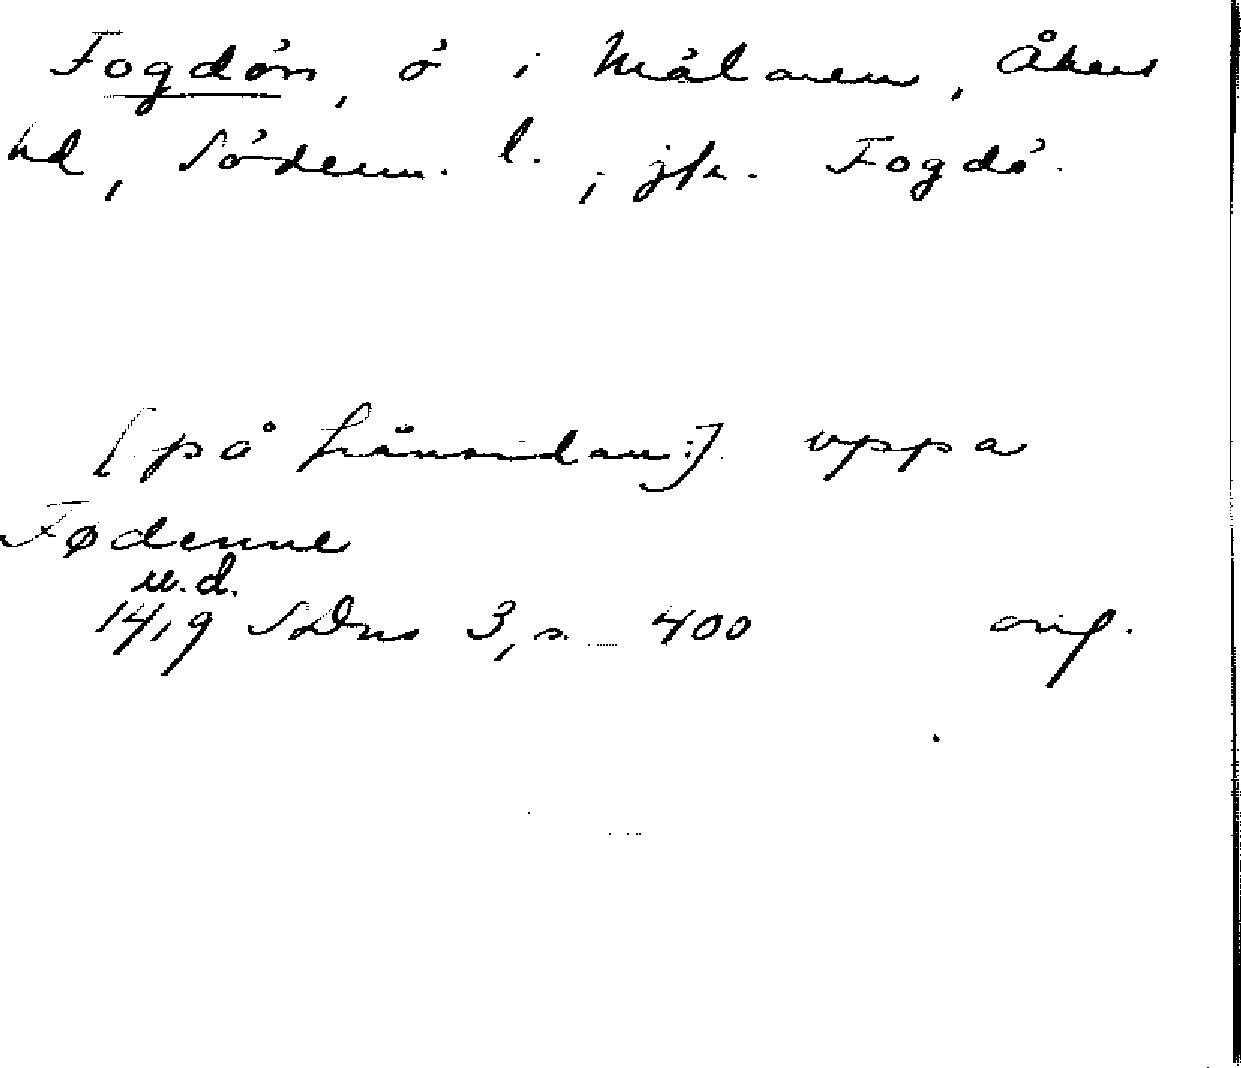 Fogdön, ö i Mälaren, Åkers
hd, Söderm. l. ; jfr. Fogdö.
[på frånsidan:] vppa
Fødenne
u.d.
1419 SDns 3, s. 400 orig.